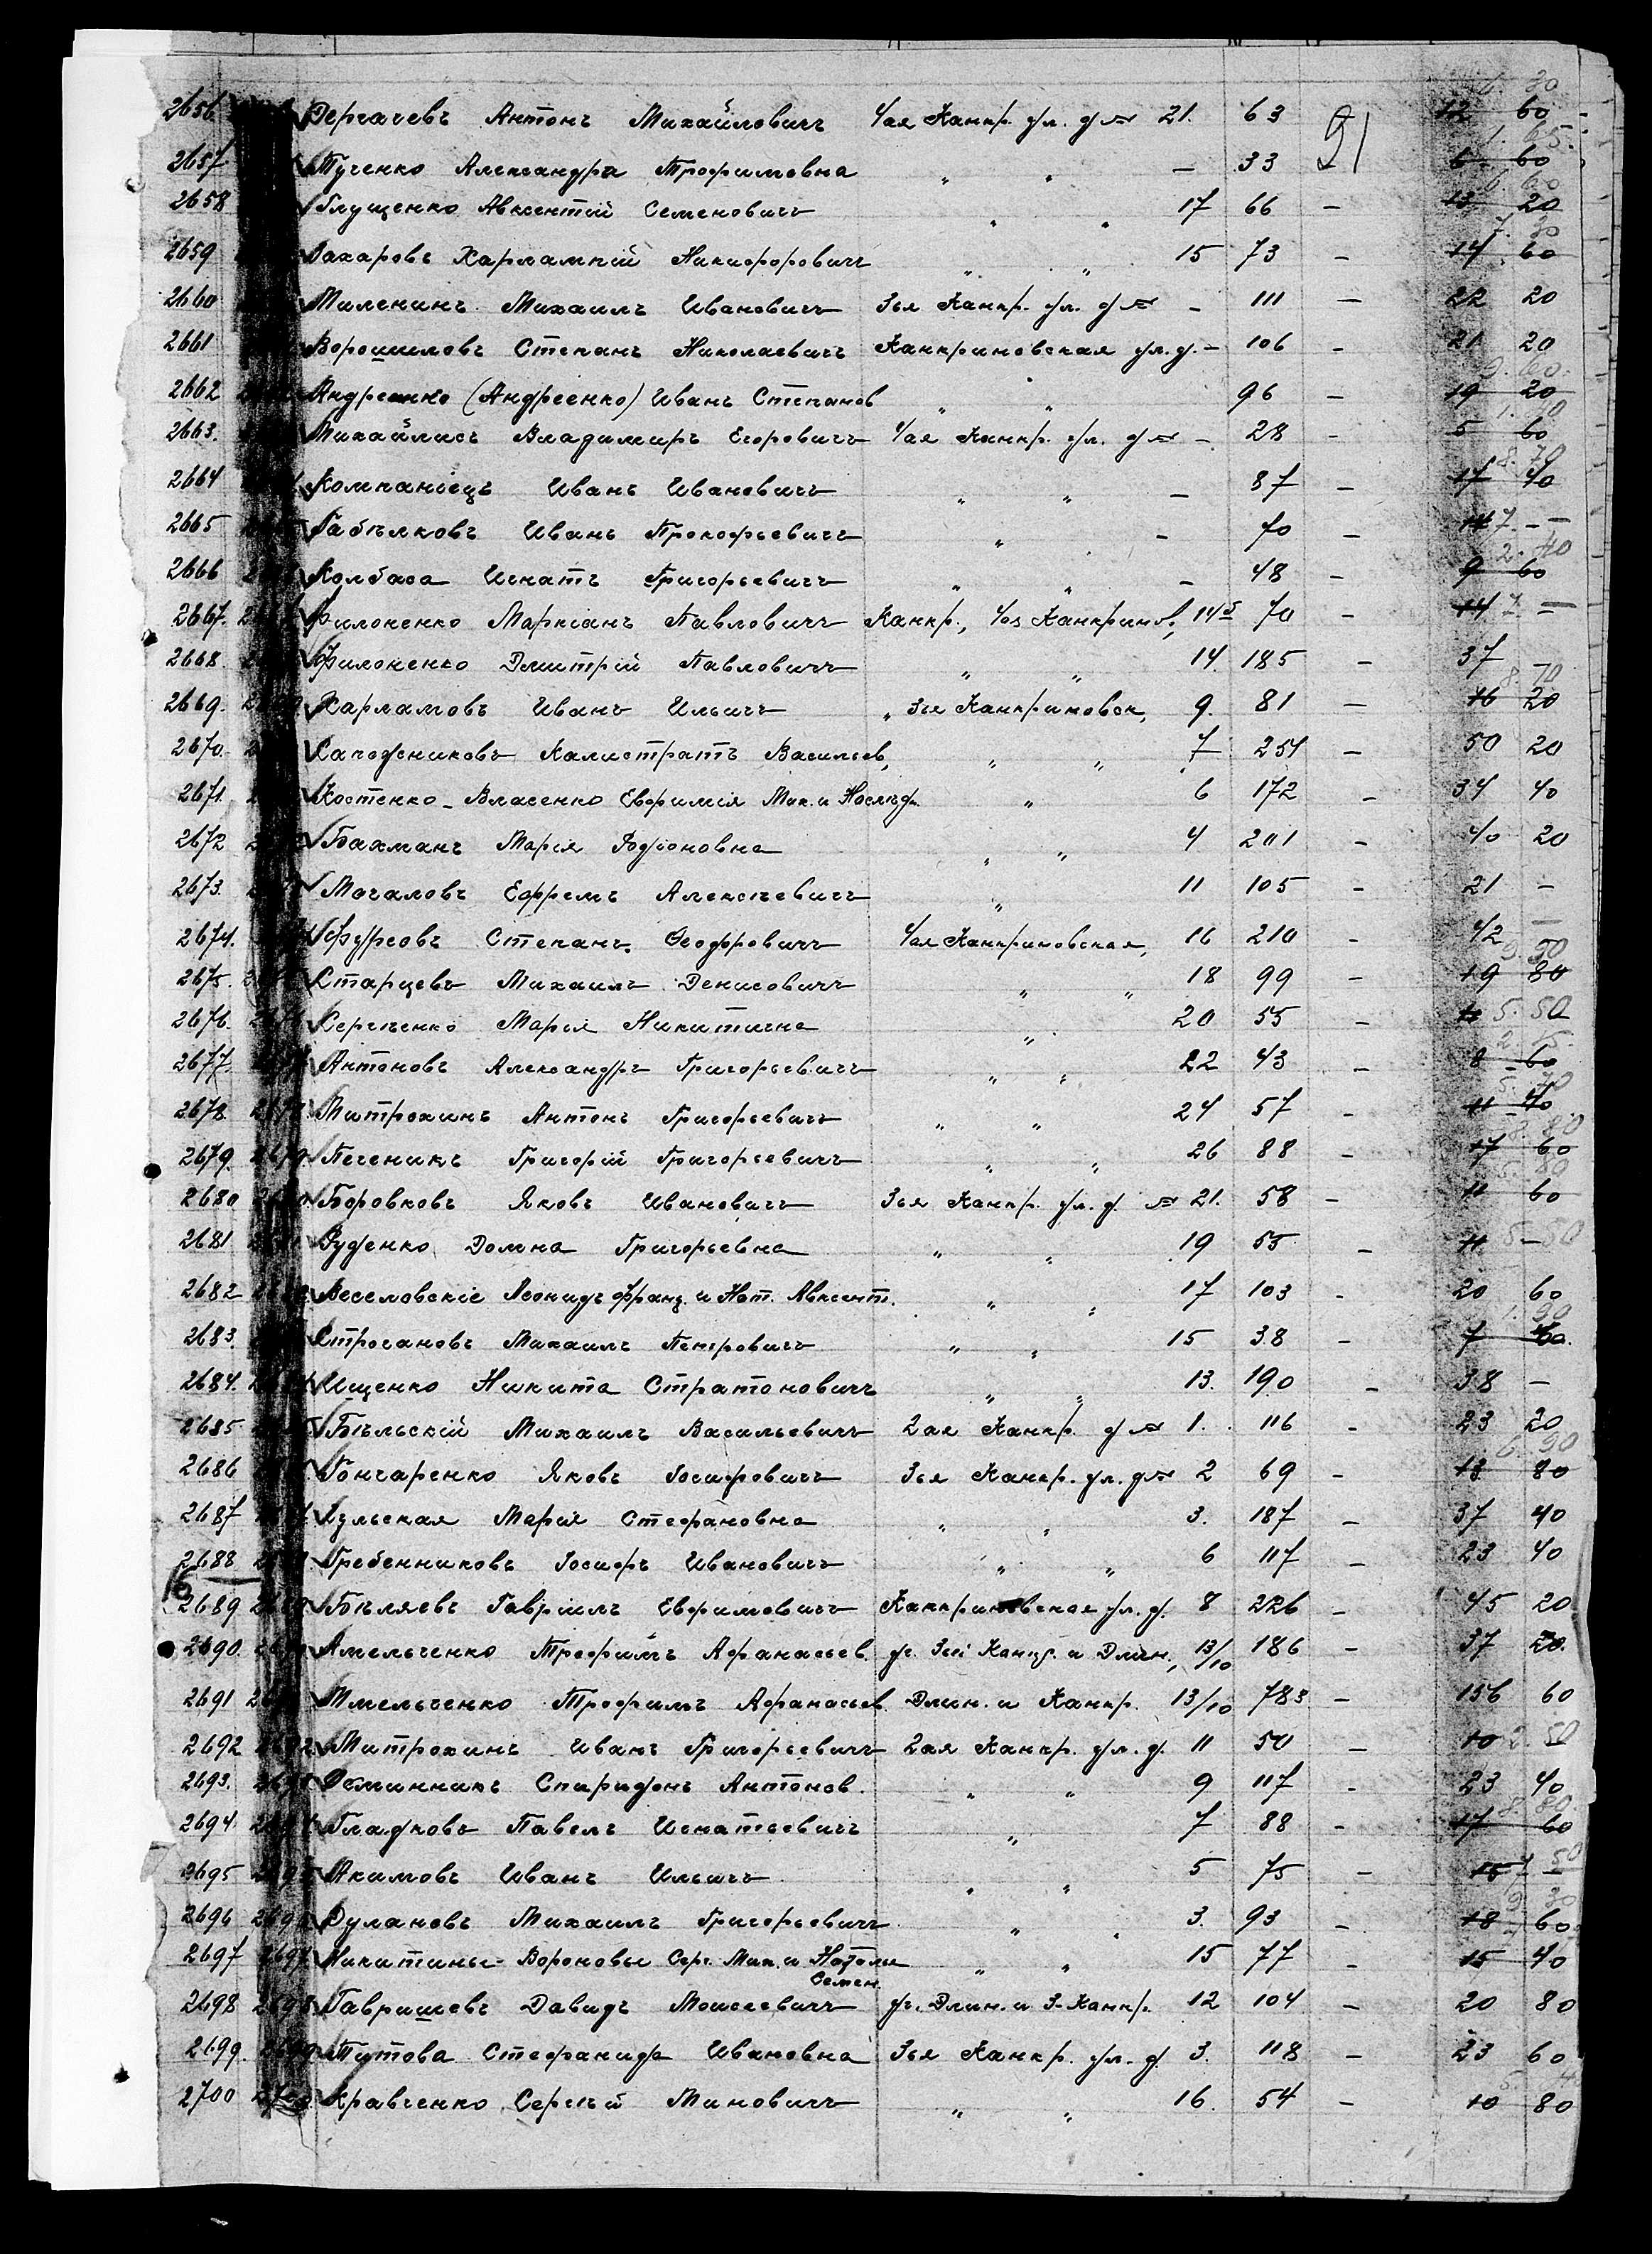 2656 Дергачевъ Антонъ Михайловичъ 1ая Канкр. ул. д № 21. 63 91 12 60
2657 Тученко Александра Трофимовна " " — 33 6 60
2658 Глущенко Авксентій Семеновичъ " " 17 66 — 13 20
2659 Захаровъ Харлампій Никифоровичъ " " 15 73 — 14 60
2660 Миленинъ Михаилъ Ивановичъ 3ья Канкр. ул. д № — 111 — 22 20
2661 Ворошиловъ Степанъ Николаевичъ Канкриновская ул. д. — 106 — 21 20
2662 (Андреенко) Иванъ Степанов " " 96 — 19 20
2663. Михайлисъ Владимиръ Егоровичъ 1ая Канкр. ул. д № — 28 — 5 60
2664 Компаніецъ Иванъ Ивановичъ " " — 87 — 17 40
2665 Габелковъ Иванъ Прокофьевичъ " — 70 — 14 7. — —
2666 Колбаса Игнатъ Григорьевичъ " " — 48 — 9 60
2667. Филоненко Маркіанъ Павловичъ Канкр., 1оя Канкринов, 14 70 — 14 7 —
2668. Филоненко Дмитрій Павловичъ " " 14. 185 — 37 —
2669. Харламовъ Иванъ Ильичъ " 3ья Канкриновск, 9. 81 — 16 20
2670. Сапожниковъ Калистратъ Васильев, " " 7 251 — 50 20
2671. Костенко-Власенко Евфимія Мак. и " 6 172 — 34 40
2672 Бахманъ Марія Родіоновна " " 4 201 — 40 20
2673. Мочаловъ Ефремъ Алексѣевичъ " 11 105 — 21 —
2674. Степанъ 1ая Канкриновская, 16 210 — 42 —
2675. Старцевъ Михаилъ Денисовичъ " " 18 99 — 19 80
2676. Сергѣенко Марія Никитична " 20 55 — 11 5. 50
2677. Антоновъ Александръ Григорьевичъ " " 22 43 — 8 60
2678. Митрохинъ Антонъ Григорьевичъ " " 24 57 — 11 40
2679. Печеникъ Григорій Григорьевичъ " " 26 88 — 17 60
2680 Боровковъ Яковъ Ивановичъ 3ья Канкр. ул. д. № 21. 58 — 11 60
2681 Руденко Домна Григорьевна " " 19 55 — 11 5. 50
2682 Веселовскіе Леонидъ Франц. и Нат. Авксент. " " 17 103 — 20 60
2683. Строгановъ Михаилъ Петровичъ " " 15 38 — 7 60.
2684. Ищенко Никита Стратоновичъ " " 13. 190 — 38 —
2685 Бѣльскій Михаилъ Васильевичъ 2ая Канкр. д № 1. 116 — 23 20
2686 Гончаренко Яковъ Іосифовичъ 3ья Канкр. ул. д № 2 69 — 13 80
2687 Кульская Марія Стефановна " " 3. 187 — 37 40
2688 Гребенниковъ Іосифъ Ивановичъ " " 6 117 — 23 40
16
2689 Бѣляевъ Гавріилъ Евфимовичъ Канкриновская ул. д. 8 226 — 45 20
2690. Амельченко Трофимъ Афанасьев. уг. 3ьей и Длин., 13/10 186 — 37 20.
2691 Амельченко Трофимъ Афанасьев. Длин. и Канкр. 13/10 783 — 156 60
2692 Митрохинъ Иванъ Григорьевичъ 2ая Канкр. ул. д. 11 50 — 10 2. 50
2693. Осминникъ Спиридонъ Антонов. " " 9 117 — 23 40
2694. Гладковъ Павелъ Игнатьевичъ " 7 88 — 17 60
2695 Акимовъ Иванъ Ильичъ " " 5 75 — 15 7 50
2696 Дулановъ Михаилъ Григорьевичъ " " 3. 93 — 18 60
2697 Никитины-Вороновы Серг. Мих. и Наталья " " 15 77 — 15 40
Семен.
2698 Гавришевъ Давидъ Моисеевичъ уг. Длин. и 3-Канкр. 12 104 — 20 80
2699. Титова Стефанида Ивановна 3ья Канкр. ул. д. 3. 118 — 23 60
2700 Кравченко Сергѣй Миновичъ " " 16. 54 — 10 80